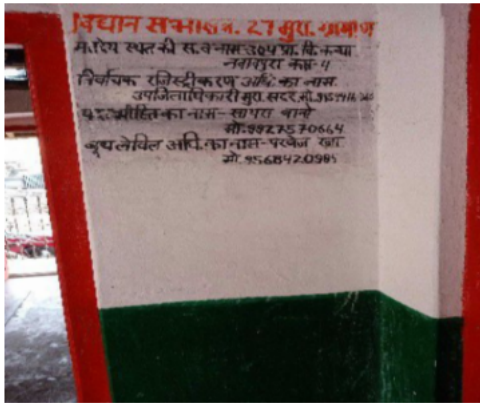 विधान सभा स. न. 27 मुरा. ग्रामीण
म.देय स्थल की सं. व नाम-304 प्रा. वि. कन्या
नवाबपुरा कक्ष-4
निर्वाचक रजिस्ट्रीकरण अधि. का नाम
उपजिलाधिकारी मुरा. सदर मो.
पदाभिहित का नाम- सायरा बानो
मो. 9927570664
बूथ लेविल अधि. का नाम- परवेज खा
मो. 9568420985